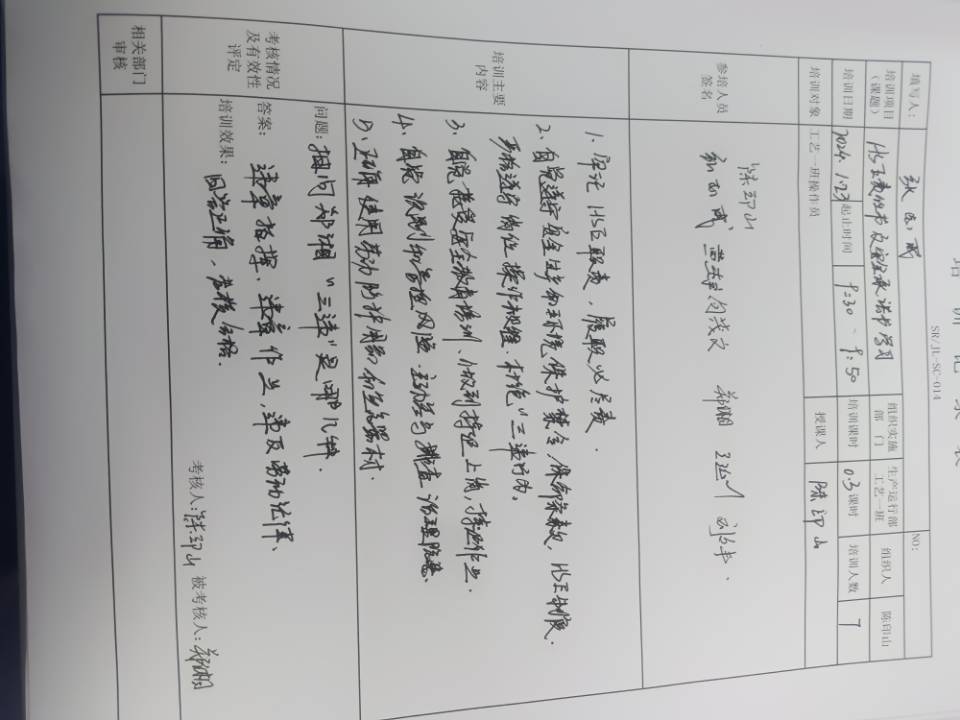 培训记录表
SR/JL-SC-014
NO:
填写人：
培训项目（课题） HSE责任书及安全承诺书学习 组织实施部门 生产运行部工艺一班 组织人 陈印山
培训日期 2024.1.23 起止时间 9:30-9:50 培训课时 0.3课时 培训人数 7
培训对象 工艺一班操作员 授课人 陈印山
参培人员签名
陈印山
郑湘
培训主要内容
1. 牢记HSE职责，履职必尽责.
2. 自觉遵守安全生产和环境保护禁令，保命条款，HSE制度.
严格遵守岗位操作规程.杜绝"三违"行为。
3. 自觉接受安全教育培训、做到持证上岗，持证作业.
4. 自觉识别和管控风险.主动参与排查治理隐患.
5、正确使用劳动防护用品和应急器材.
考核情况及有效性评定
问题：提问郑湘"三违"是哪几种.
答案：违章指挥、违章作业、违反劳动纪律、
培训效果：回答正确、考核合格.
考核人：陈印山 被考核人：郑湘
相关部门审核